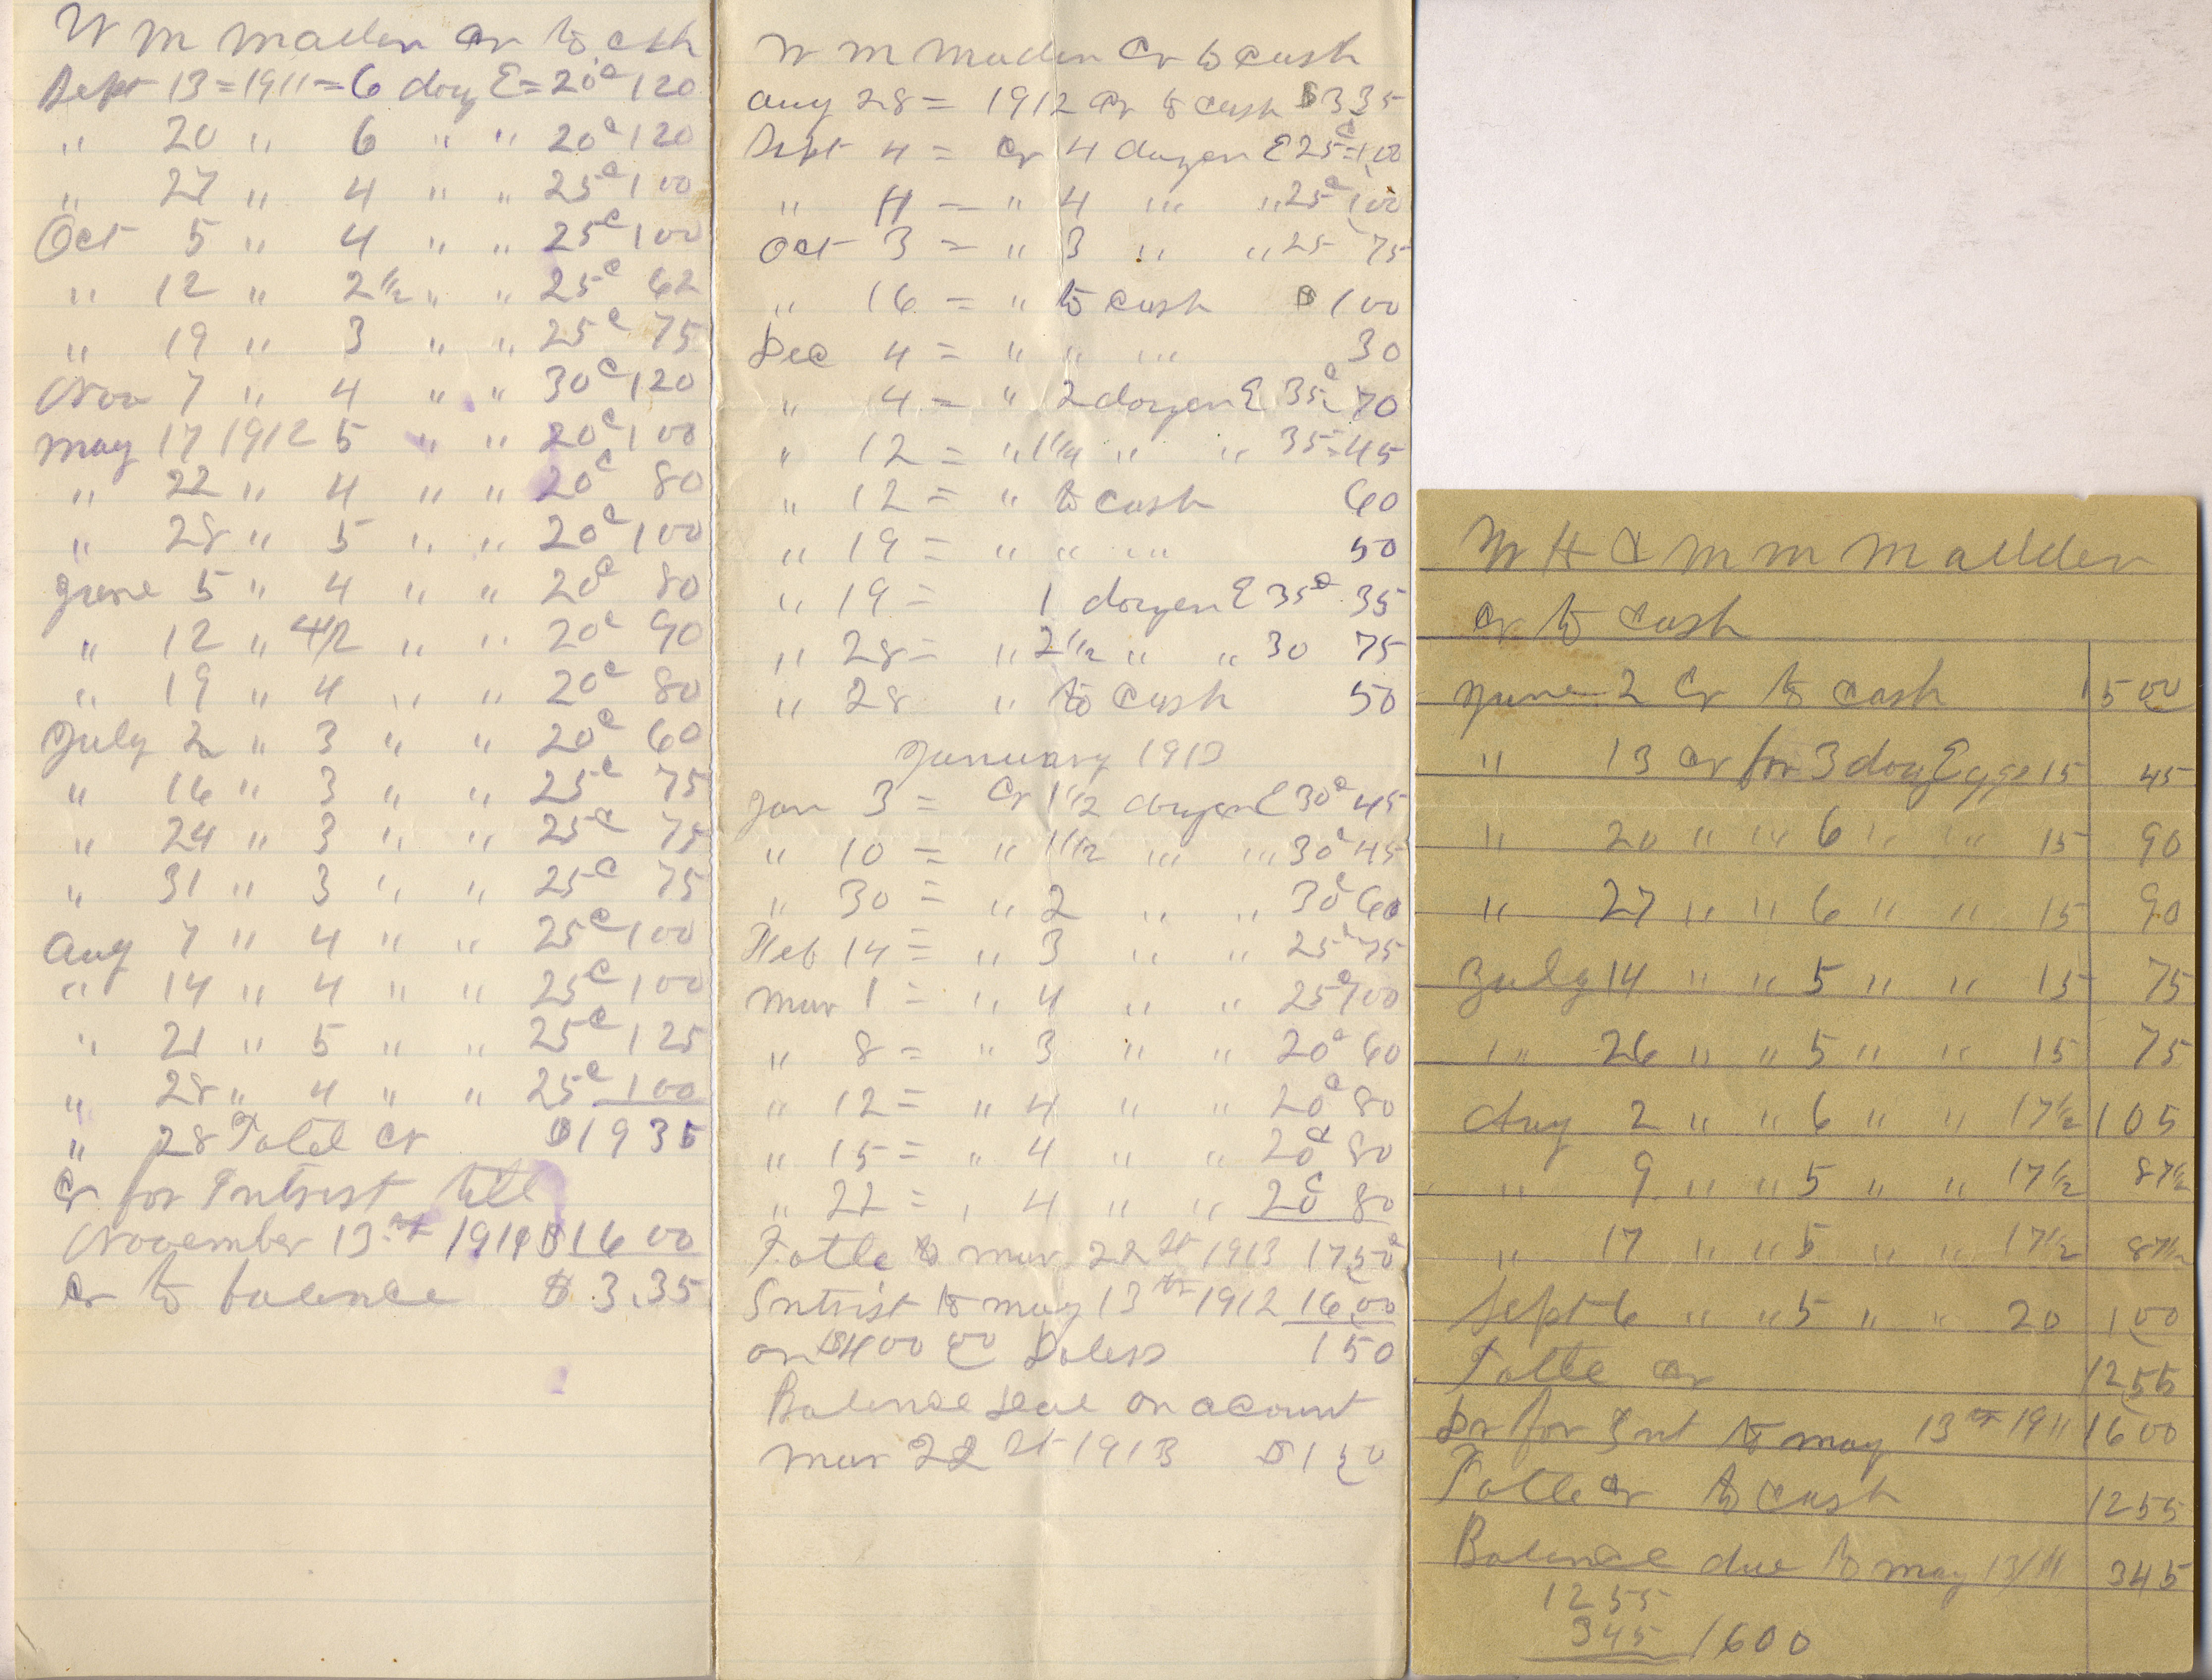 W M Madden Cr to cash
Sept 13 = 1911 = 6 doz E = 20c 1 20
" 20 " 6 " " 20c 1 20
" 27 " 4 " " 25c 1 00
Oct 5 " 4 " " 25c 1 00
" 12 " 2 1/2 " " 25c 62
" 19 " 3 " " 25c 75
Nov 7 " 4 " " 30c 1 20
May 17 1912 5 " " 20c 1 00
" 22 " 4 " " 20c 80
" 28 " 5 " " 20c 1 00
June 5 " 4 " " 20c 80
" 12 " 4 1/2 " " 20c 90
" 19 " 4 " " 20c 80
July 2 " 3 " " 20c 60
" 16 " 3 " " 25c 75
" 24 " 3 " " 25c 75
" 31 " 3 " " 25c 75
Aug 7 " 4 " " 25c 1 00
" 14 " 4 " " 25c 1 00
" 21 " 5 " " 25c 1 25
" 28 " 4 " " 25c 1 00
" 28 Total Cr $19 35
Cr for Intrist till
November 13th 1911 $16 00
Cr to balence $3.35
W M Madden Cr to cash
Aug 28 = 1912 Cr to cash $3 35
Sept 4 = Cr 4 dozen E 25c = 1 00
" 11 = " 4 " " 25c 1 00
Oct 3 = " 3 " " 25 75
" 16 = " to cash $1 00
Dec 4 = " " " 30
" 4 = " 2 dozen E 35c 70
" 12 = " 1 1/4 " " 35 = 45
" 12 = " to cash 60
" 19 = " " " 50
" 19 = 1 dozen E 35c 35
" 28 = " 2 1/2 " " 30 75
" 28 " to cash 50
January 1913
Jan 3 = Cr 1 1/2 dozen E 30c 45
" 10 = " 1 1/2 " " 30c 45
" 30 = " 2 " " 30c 60
Feb 14 = " 3 " " 25c 75
Mar 1 = " 4 " " 25c 1 00
" 8 = " 3 " " 20c 60
" 12 = " 4 " " 20c 80
" 15 = " 4 " " 20c 80
" 22 = " 4 " " 20c 80
Totle to mar 22st 1913 17 50
Intrist to may 13th 1912 16 00
on $400 00 Dolers 1 50
Balence deue on acount
Mar 22st 1913 $1 50
W H & M M Madden
Cr to cash
June 2 Cr to cash 5 00
" 13 Cr for 3 doz Eggs 15 45
" 20 " " 6 " " 15 90
" 27 " " 6 " " 15 90
July 14 " " 5 " " 15 75
" 26 " " 5 " " 15 75
Aug 2 " " 6 " " 17 1/2 1 05
" 9 " " 5 " " 17 1/2 87 1/2
" 17 " " 5 " " 17 1/2 87 1/2
Sept 6 " " 5 " " 20 1 00
Totle Cr 12 55
Dr for Int to may 13th 1911 16 00
Totle Cr to cash 12 55
Balence due to may 13/11 3 45
12 55
3 45 16 00